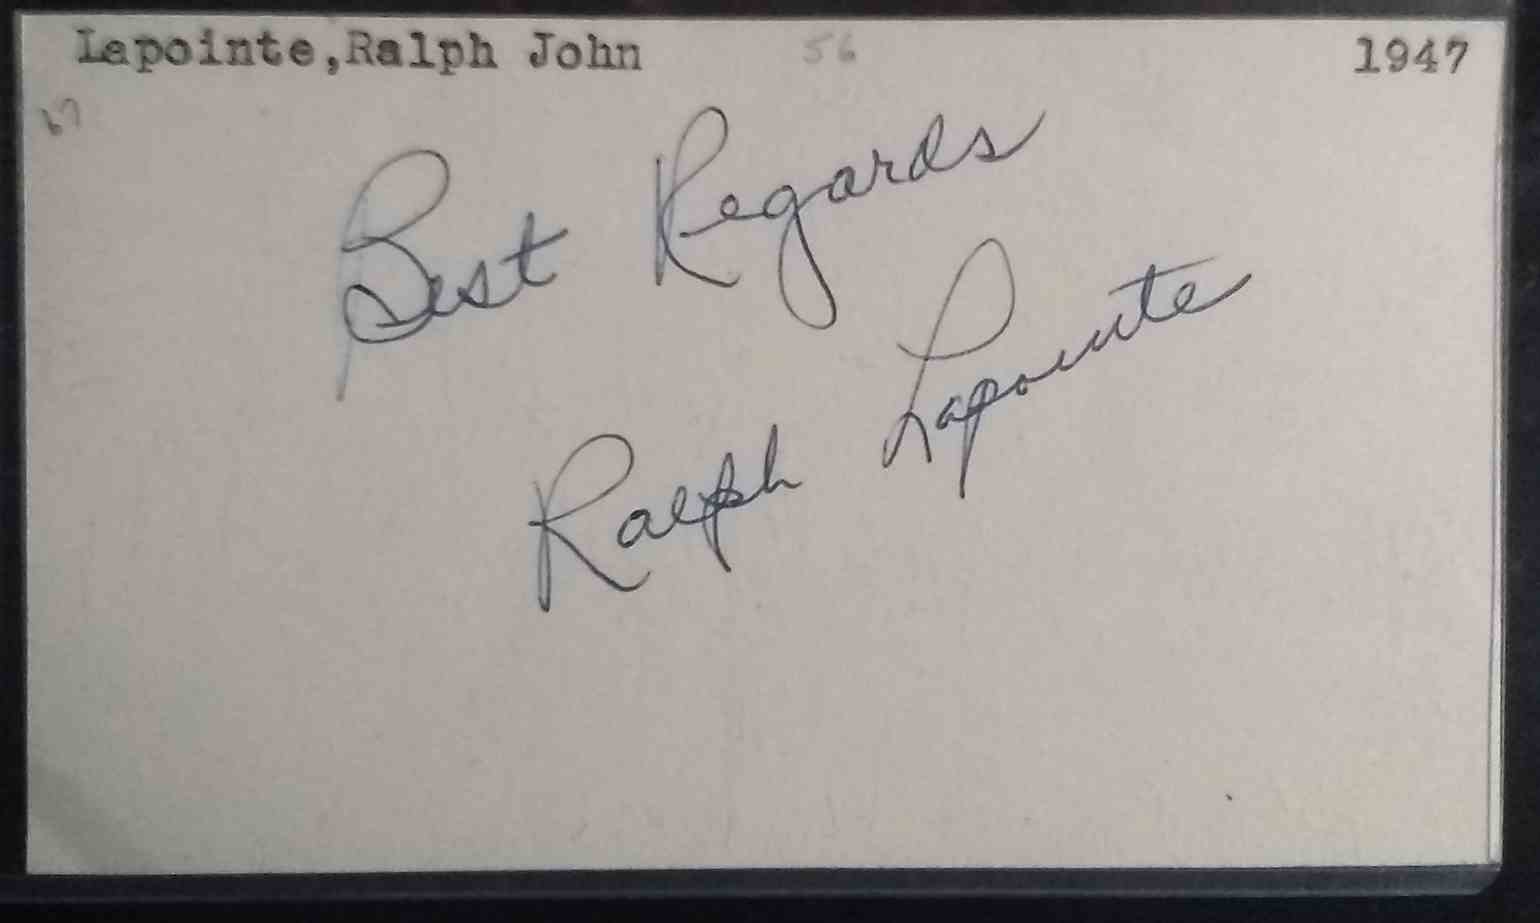 Lapointe,Ralph John 56 1947
67
Best Regards
Ralph Lapointe